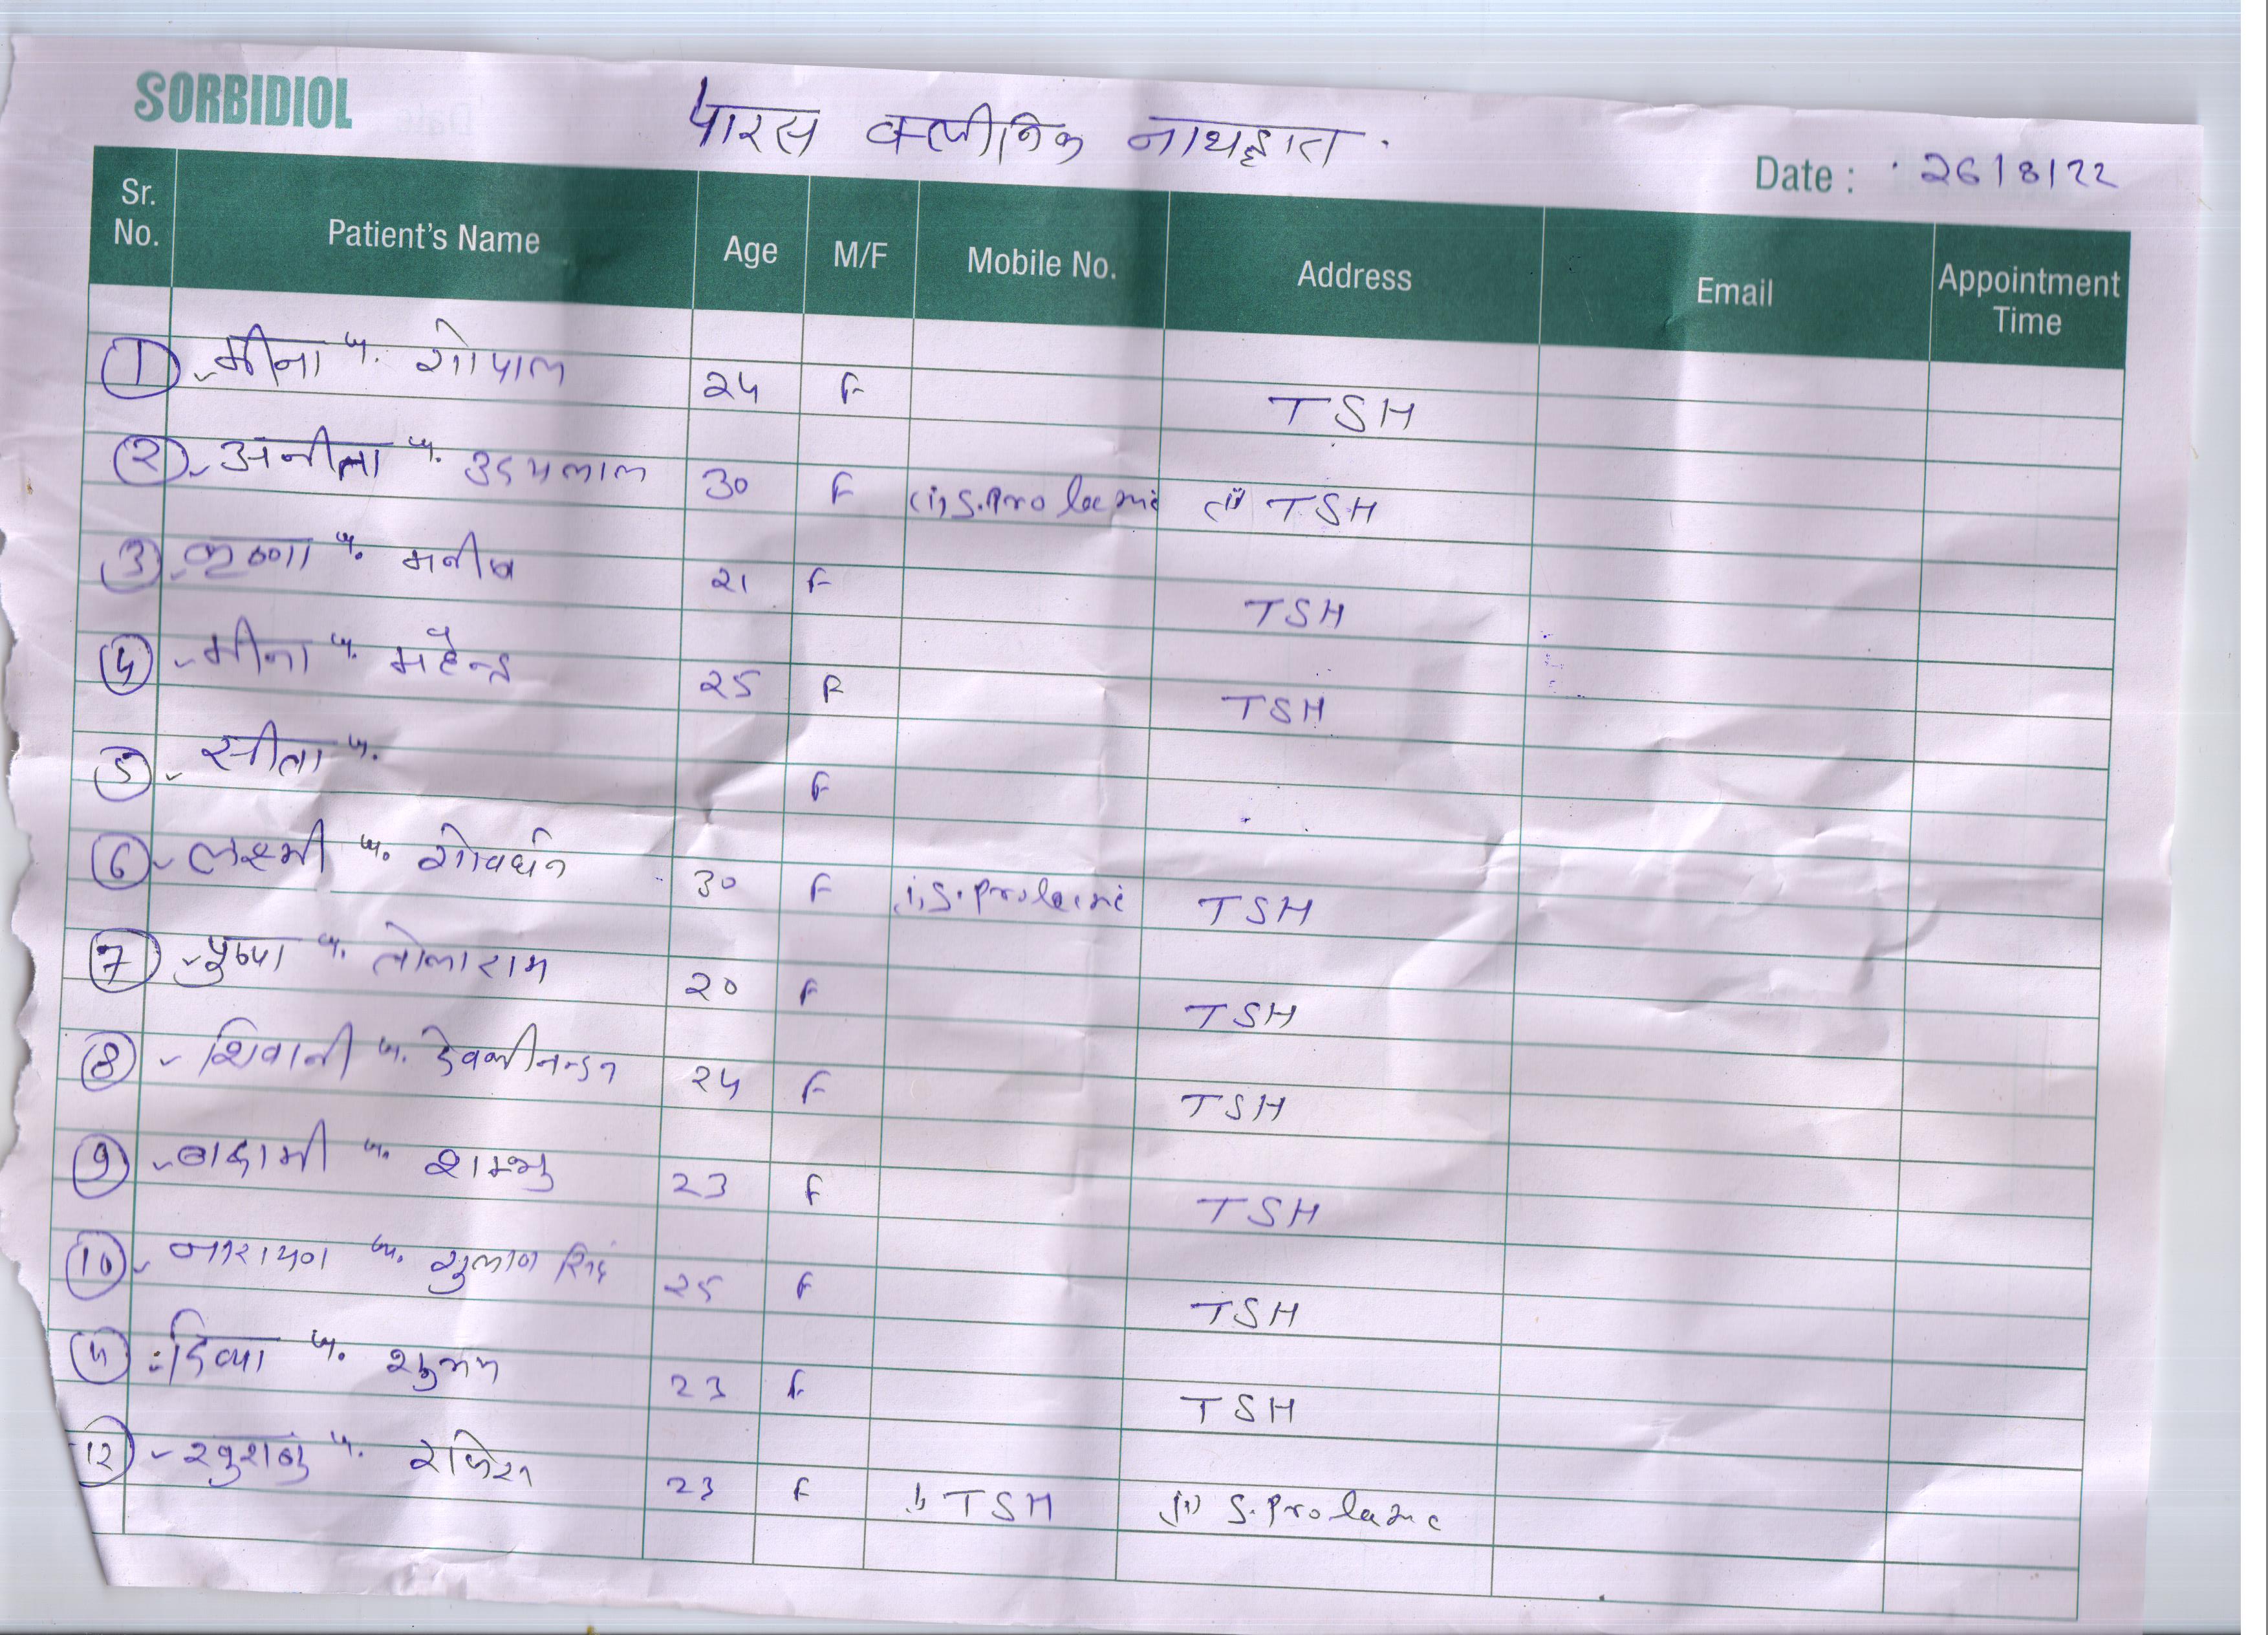 SORBIDIOL
पारस क्लीनिक नाथद्वारा
Date : 26/8/22
Sr. No. Patient's Name Age M/F Mobile No. Address Email Appointment Time
1 मीना प. गोपाल 24 F TSH
2 अनीता प. उदयलाल 30 F (i) S. Prolactin (ii) TSH
3 कृष्णा प. मनीष 21 F TSH
4 मीना प. महेन्द्र 25 F TSH
5 सीता प. F
6 लक्ष्मी प. गोवर्धन 30 F i) S. Prolactin TSH
7 पुष्पा प. तोलाराम 20 F TSH
8 शिवानी प. देवकीनन्दन 24 F TSH
9 बादामी प. शम्भु 23 F TSH
10 नारायण प. गुलाब सिंह 25 F TSH
11 दिव्या प. शुभम 23 F TSH
12 खुशबु प. 23 F i) TSH (ii) S. Prolactin